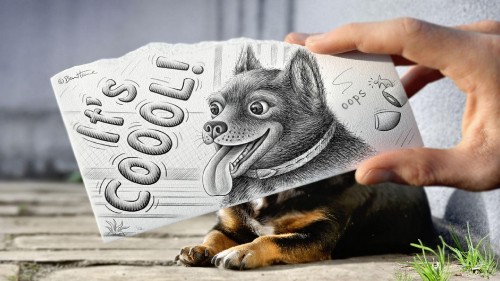 © Ben Heine
It's
COOOL!
oops